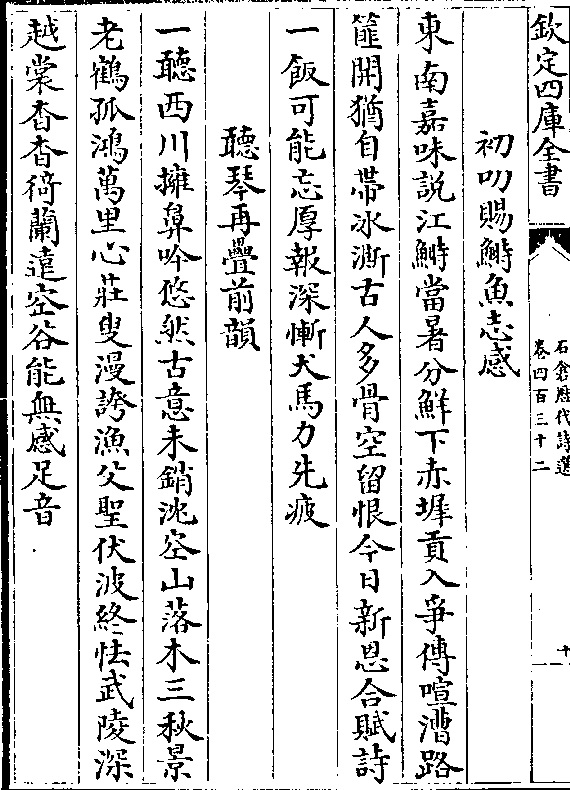 欽定四庫全書
石倉歷代詩選
卷四百三十二
十
初叨賜鰣魚志感
東南嘉味説江鰣當暑分鮮下赤墀貢入爭傳喧漕路
筐開猶自帶冰澌古人多骨空留恨今日新恩合賦詩
一飯可能忘厚報深慚犬馬力先疲
聽琴再疊前韻
一聽西川擁鼻吟悠然古意未銷沈空山落木三秋景
老鶴孤鴻萬里心莊叟漫誇漁父聖伏波終怯武陵深
越棠杳杳猗蘭遠空谷能無感足音